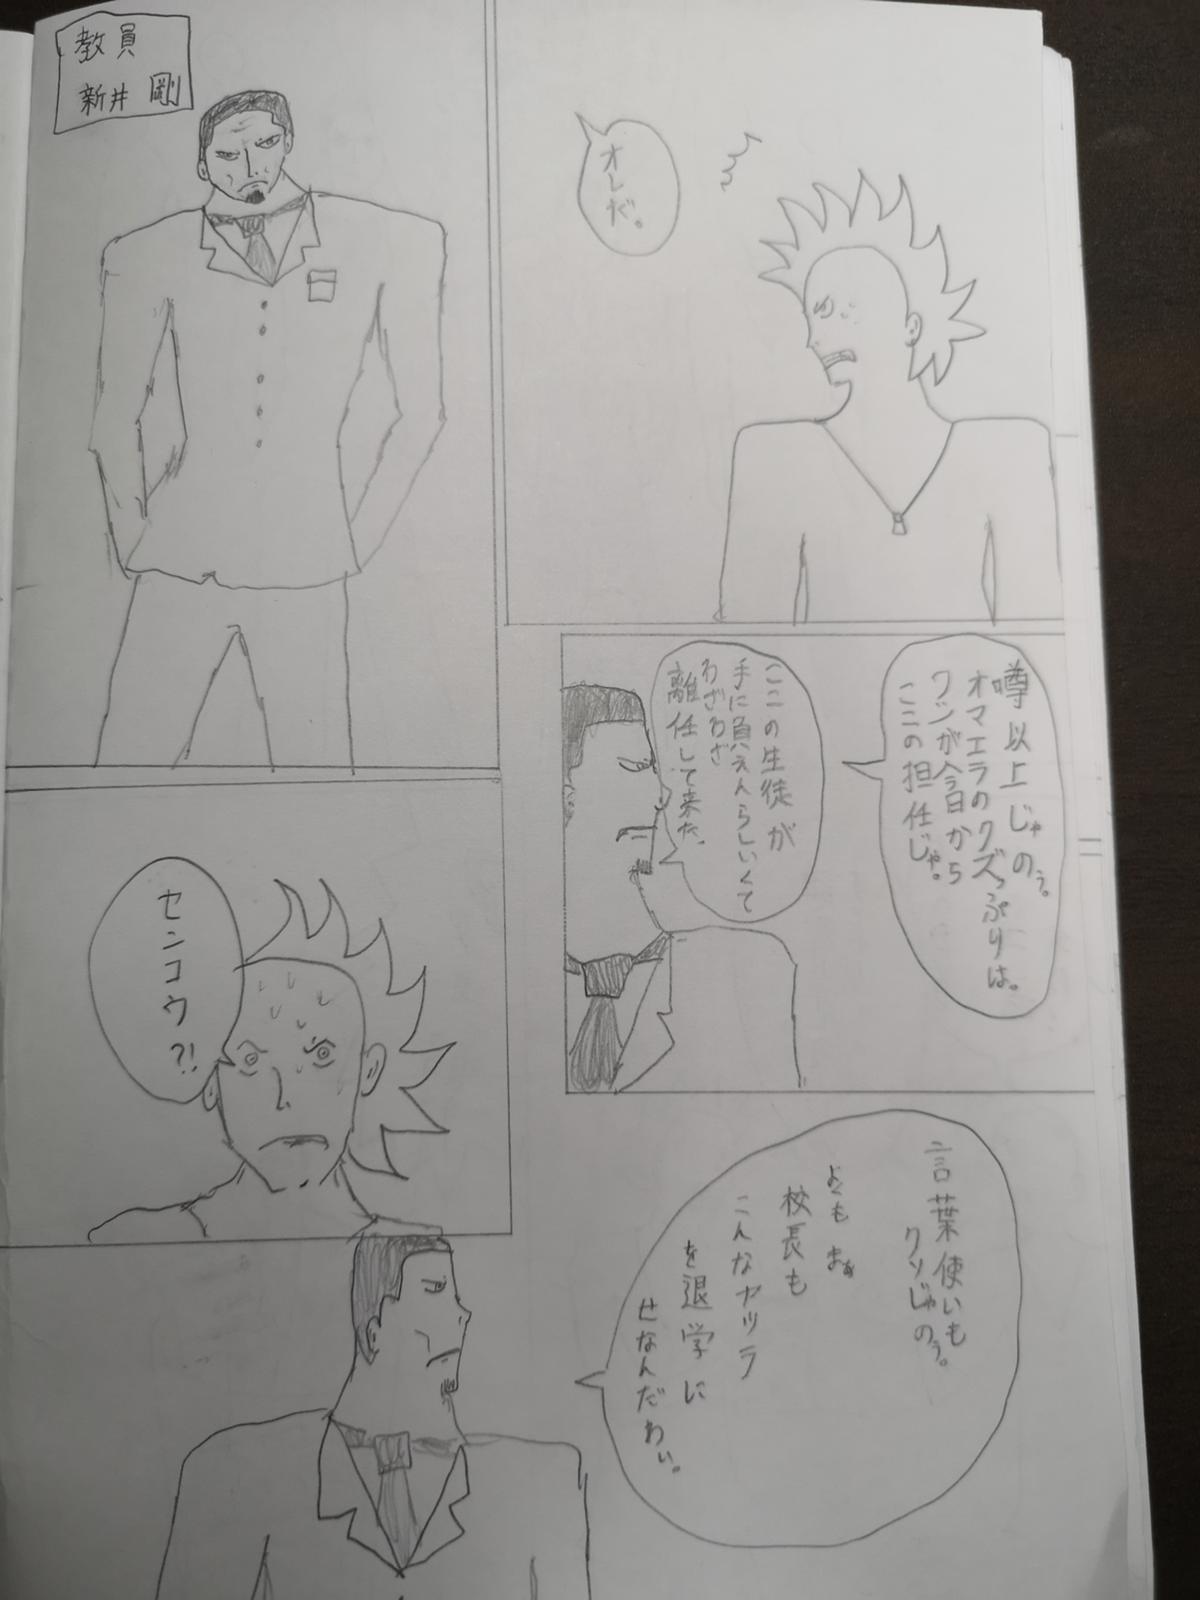 オレだ。
教員
新井 剛
噂以上じゃのぅ。
オマエラのクズっぷりは。
ワシが今日から
ここの担任じゃ。
ここの生徒が
手に負えんらしいくて
わざわざ
離任して来た。
センコウ?!
言葉使いも
クソじゃのぅ。
よくもまぁ
校長も
こんなヤツラ
を退学に
せなんだわぃ。